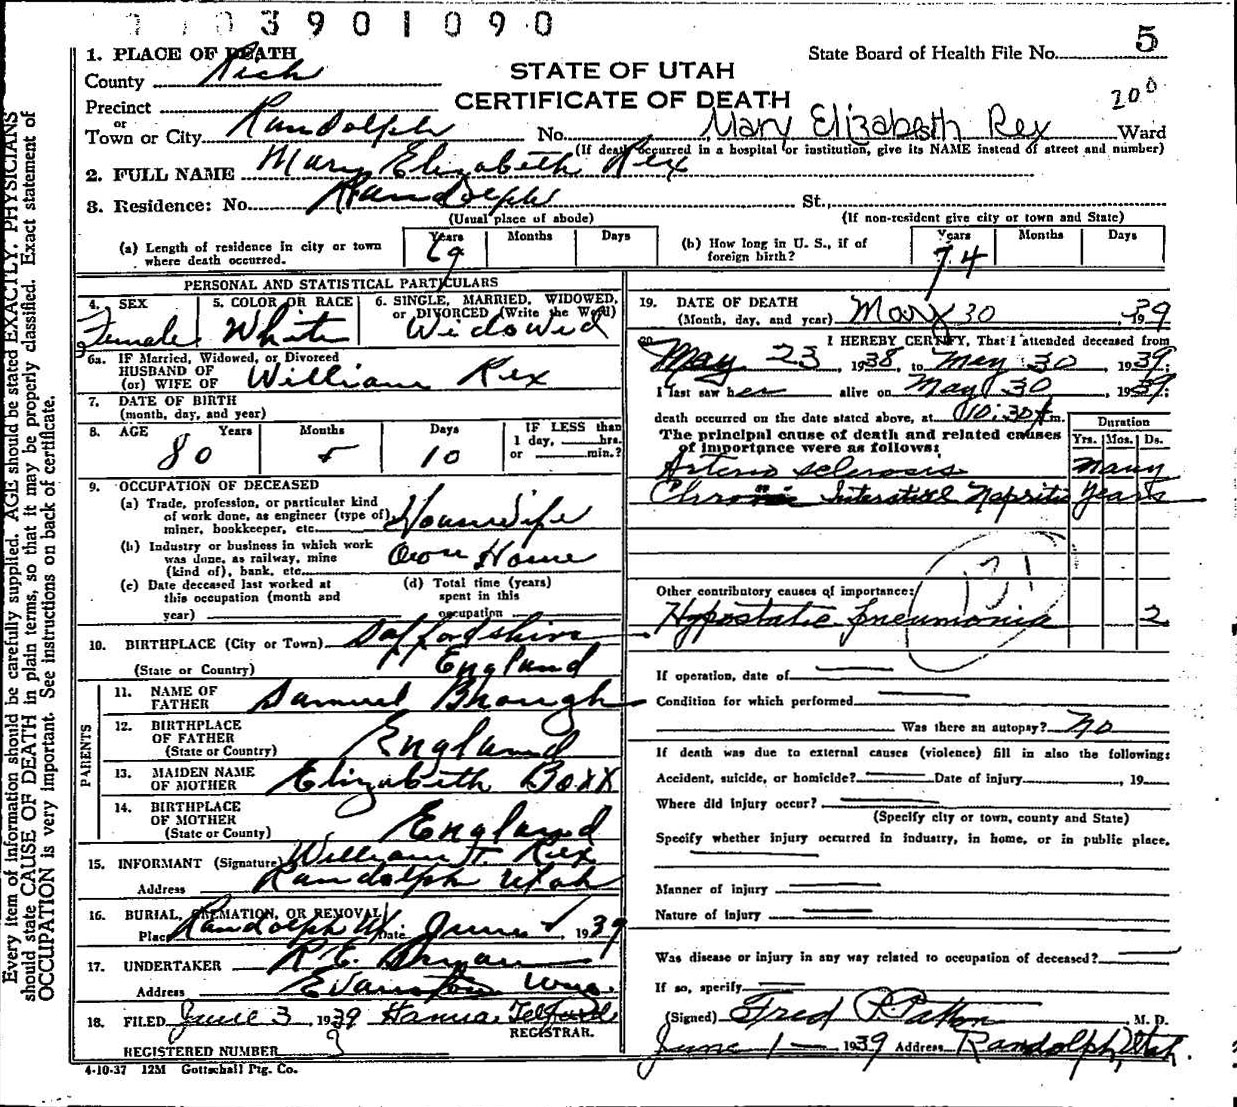 3901090
1. PLACE OF DEATH
State Board of Health File No. 5
County Rich
STATE OF UTAH
CERTIFICATE OF DEATH
200
Precinct
or
Town or City Randolph No. Mary Elizabeth Rex Ward
(If death occurred in a hospital or institution, give its NAME instead of street and number)
2. FULL NAME Mary Elizabeth Rex
3. Residence: No. Randolph St.,
(Usual place of abode) (If non-resident give city or town and State)
(a) Length of residence in city or town where death occurred. Years 69 Months Days
(b) How long in U. S., if of foreign birth? Years 74 Months Days
PERSONAL AND STATISTICAL PARTICULARS
4. SEX Female
5. COLOR OR RACE White
6. SINGLE, MARRIED, WIDOWED, or DIVORCED (Write the Word) Widowed
6a. IF Married, Widowed, or Divorced
HUSBAND OF
(or) WIFE OF William Rex
7. DATE OF BIRTH
(month, day, and year)
8. AGE Years 80 Months 5 Days 10 IF LESS than
1 day, hrs.
or min.?
9. OCCUPATION OF DECEASED
(a) Trade, profession, or particular kind
of work done, as engineer (type of)
miner, bookkeeper, etc. Housewife
(b) Industry or business in which work
was done, as railway, mine
(kind of), bank, etc. Own Home
(c) Date deceased last worked at
this occupation (month and
year)
(d) Total time (years)
spent in this
occupation
10. BIRTHPLACE (City or Town) Saffordshire
(State or Country) England
PARENTS
11. NAME OF
FATHER Samuel Brough
12. BIRTHPLACE
OF FATHER
(State or Country) England
13. MAIDEN NAME
OF MOTHER Elizabeth Boxx
14. BIRTHPLACE
OF MOTHER
(State or County) England
15. INFORMANT (Signature) William T. Rex
Address Randolph Utah
16. BURIAL, CREMATION, OR REMOVAL
Place Randolph U. Date June 1, 1939
17. UNDERTAKER R. E.
Address Evanston Wyo.
18. FILED June 3, 1939 Hanna Telford
REGISTRAR.
REGISTERED NUMBER 3
4-10-37 12M Gottschall Ptg. Co.
19. DATE OF DEATH
(Month, day, and year) May 30, 1939
20. I HEREBY CERTIFY, That I attended deceased from
May 23, 1938, to May 30, 1939;
I last saw her alive on May 30, 1939;
death occurred on the date stated above, at 10:30 A m.
The principal cause of death and related causes
of importance were as follows:
Duration
Yrs. Mos. Ds.
Arterio sclerosis many
Chronic Interstitial Nephritis years
Other contributory causes of importance:
Hypostatic pneumonia 2
If operation, date of
Condition for which performed
Was there an autopsy? No
If death was due to external causes (violence) fill in also the following:
Accident, suicide, or homicide? Date of injury, 19
Where did injury occur?
(Specify city or town, county and State)
Specify whether injury occurred in industry, in home, or in public place.
Manner of injury
Nature of Injury
Was disease or injury in any way related to occupation of deceased?
If so, specify
(Signed) Fred R Patton M. D.
June 1 — 1939 Address Randolph, Utah.
Every item of information should be carefully supplied. AGE should be stated EXACTLY. PHYSICIANS
should state CAUSE OF DEATH in plain terms, so that it may be properly classified. Exact statement of
OCCUPATION is very important. See instructions on back of certificate.